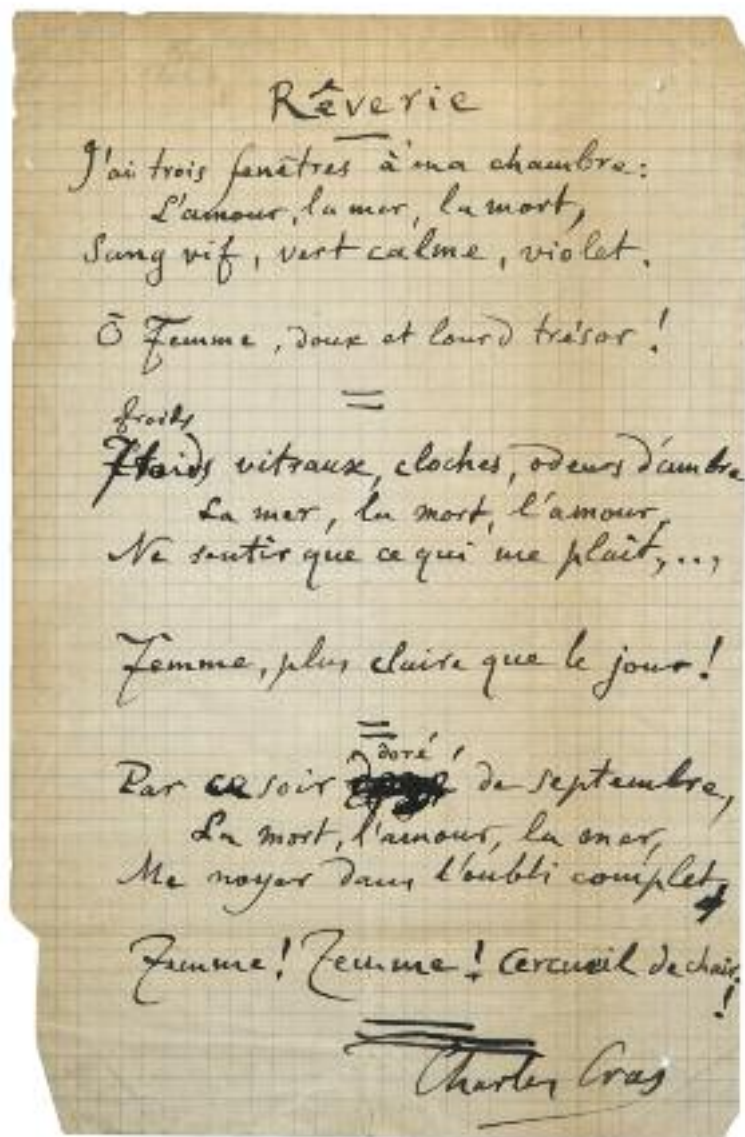 Rêverie
J'ai trois fenêtres à ma chambre:
L'amour, la mer, la mort,
Sang vif, vert calme, violet.
Ô Femme, doux et lourd trésor!
froids
Froids vitraux, cloches, odeurs d'ambre
La mer, la mort, l'amour,
Ne sentir que ce qui me plaît,..,
Femme, plus claire que le jour!
doré
Par ce soir de septembre,
La mort, l'amour, la mer,
Me noyer dans l'oubli complet,
Femme! Femme! Cercueil de chair!
Charles Cros